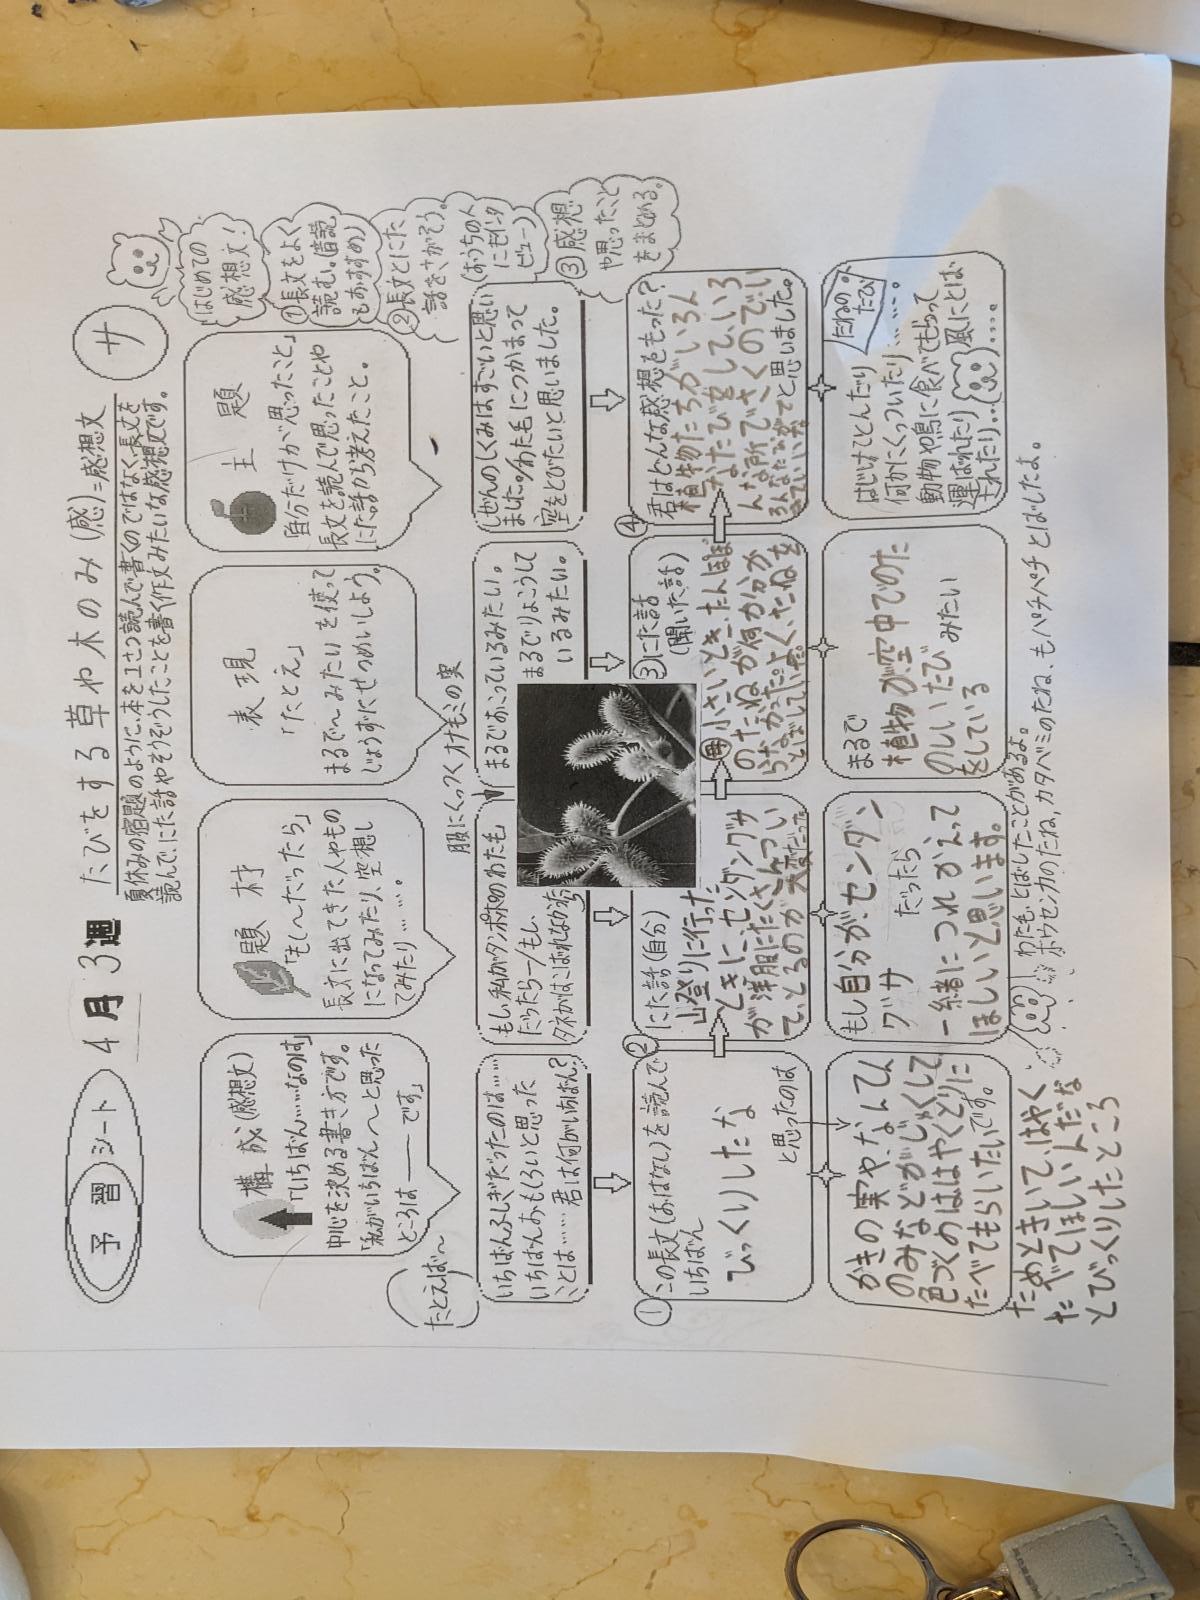 予習シート 4月3週
たびをする草や木のみ(感)=感想文
サ
夏休みの宿題のように、本を1さつ読んで書くのではなく、長文を
読んで、にた話やそうぞうしたことを書く作文みたいな感想文です。
はじめての
感想文!
①長文をよく
読む。(音読
もおすすめ)
②長文とにた
話をさがそう。
(おうちの人
にもインタ
ビュー)
③感想
や思ったこと
をまとめる。
構成(感想文)
「いちばん……なのは」
中心を決める書き方です。
「私がいちばん〜と思った
ところは――です」
題材
「もし〜だったら」
長文に出てきた人やもの
になってみたり、空想し
てみたり……。
表現
「たとえ」
まるで〜みたい を使って
じょうずにせつめいしよう。
主題
自分だけが思ったこと
長文を読んで思ったことや
にた話から考えたこと。
服にくっつくオナモミの実
たとえば〜
いちばんふしぎだったのは……
いちばんおもしろいと思った
ことは……君は何がいちばん?
もし、私がタンポポのわた毛
だったら―/もし、
タネがはこばれなかったら
まるでおこっているみたい。
まるでりょこうして
いるみたい。
しぜんのしくみはすごいと思い
ました。/わた毛につかまって
空をとびたいと思いました。
①この長文(おはなし)を読んで
いちばん
びっくりしたな
と思ったのは
②にた話(自分)
山登りに行った
ときに、センダングサ
が洋服にたくさんつい
て、とるのが大変だった
③にた話
(聞いた話)
母 小さいとき、たんぽぽ
のたねが何か分か
らなかった。よく、たねを
とばしていた。
④君はどんな感想をもった?
植物たちがいろん
なたびをして、いろ
んな所でさくのでい
と思いました。
かきの実や、なんてん
のみなどがじゅくして
色づくのははやくとりに
たべてもらいたいです。
ためときいて、はやく
たべてほしい人だな
とびっくりしたところ
もし自分が、センダン
グサ だったら
一緒につれかえって
ほしいと思います。
まるで
植物が、空中でのた
のしいたび みたい
をしている
たねの。
たび
はじけてとんだり
何かにくっついたり……。
動物や鳥に食べてもらって
運ばれたり 風にとば
されたり……。
わた毛、とばしたことがあるよ。
ホウセンカのたね、カタバミのたね、もパチパチとばしたよ。